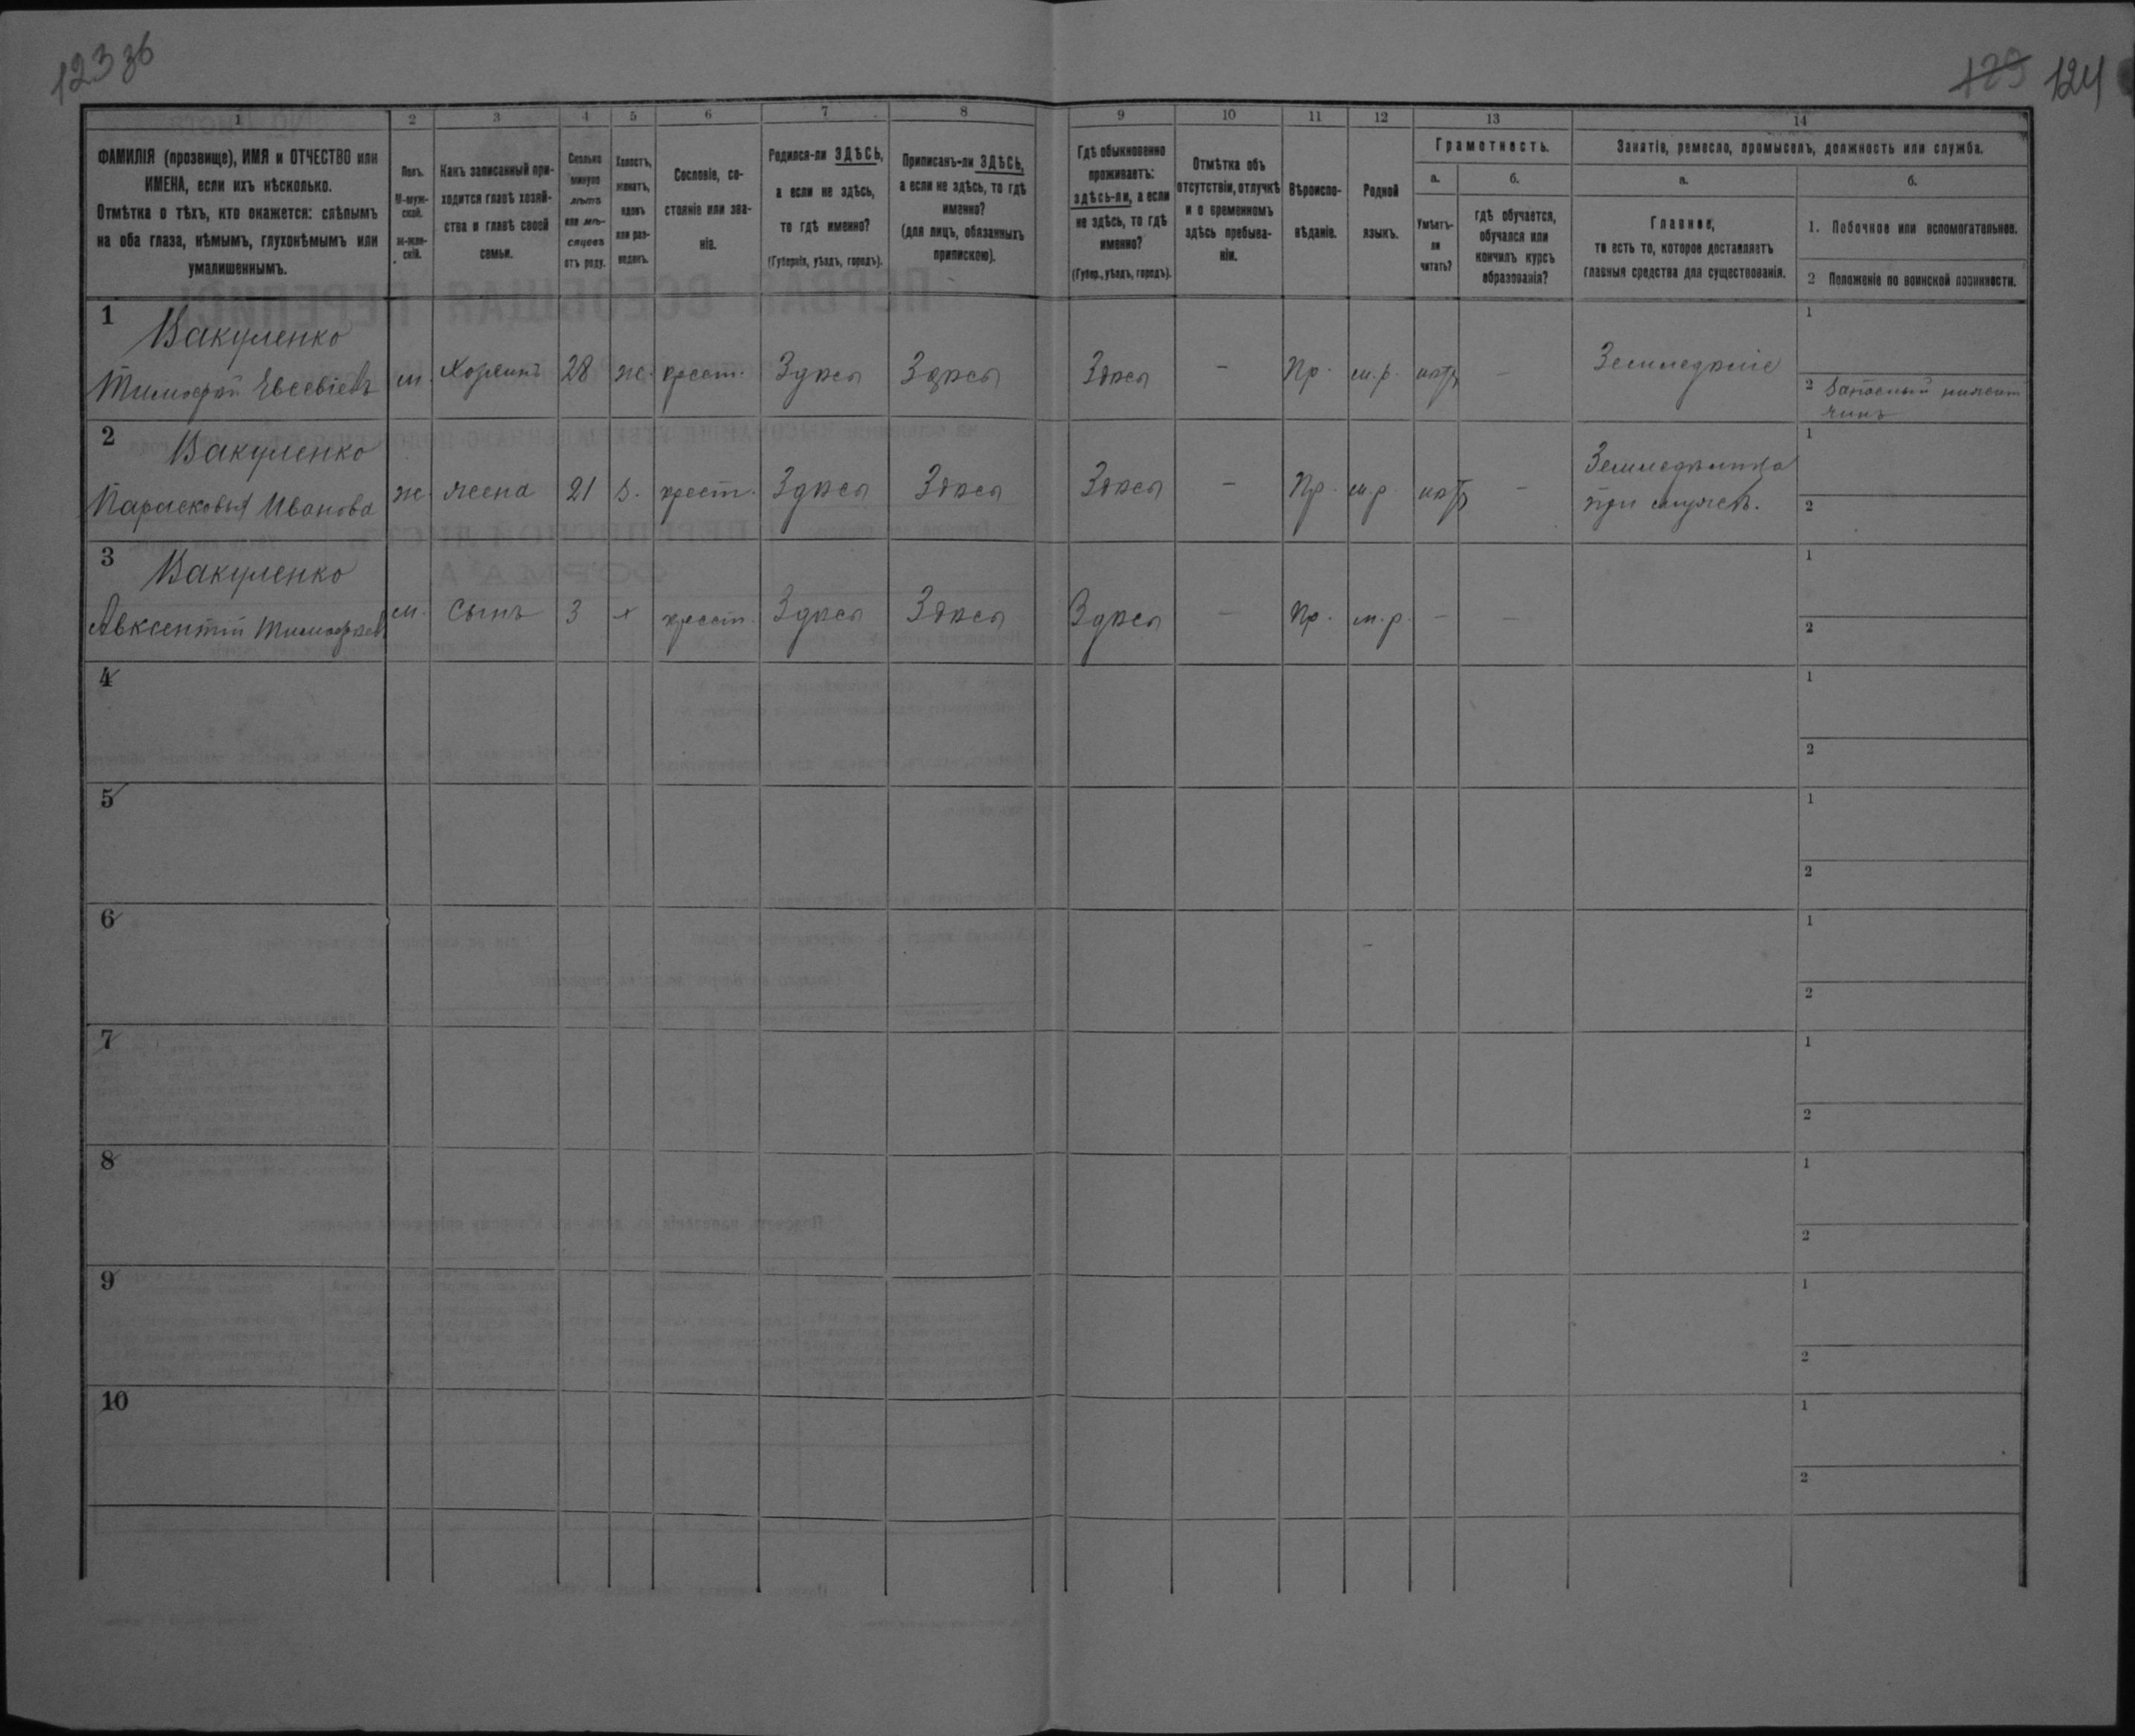 123 зб
129 124
1
2
3
4
5
6
7
8
9
10
11
12
13
14
ФАМИЛІЯ (прозвище), ИМЯ и ОТЧЕСТВО или
ИМЕНА, если ихъ нѣсколько.
Отмѣтка о тѣхъ, кто окажется: слѣпымъ
на оба глаза, нѣмымъ, глухонѣмымъ или
умалишеннымъ.
Полъ.
М-муж-
ской.
ж-жен-
скій.
Какъ записанный при-
ходится главѣ хозяй-
ства и главѣ своей
семьи.
Сколько
минуло
лѣтъ
или мѣ-
сяцевъ
отъ роду.
Холостъ,
женатъ,
вдовъ
или раз-
веденъ.
Сословіе, со-
стояніе или зва-
ніе.
Родился-ли ЗДѢСЬ,
а если не здѣсь,
то гдѣ именно?
(Губернія, уѣздъ, городъ).
Приписанъ-ли ЗДѢСЬ,
а если не здѣсь, то гдѣ
именно?
(для лицъ, обязанныхъ
припискою).
Гдѣ обыкновенно
проживаетъ:
здѣсь-ли, а если
не здѣсь, то гдѣ
именно?
(Губер., уѣздъ, городъ).
Отмѣтка объ
отсутствіи, отлучкѣ
и о временномъ
здѣсь пребыва-
ніи.
Вѣроиспо-
вѣданіе.
Родной
языкъ.
Грамотность.
а.
Умѣетъ-
ли
читать?
б.
гдѣ обучается,
обучался или
кончилъ курсъ
образованія?
Занятіе, ремесло, промыселъ, должность или служба.
а.
Главное,
то есть то, которое доставляетъ
главныя средства для существованія.
б.
1. Побочное или вспомогательное.
2 Положеніе по воинской повинности.
1 Вакуленко
Тимофей Евсевіевъ м. Хозяинъ 28 ж. крест. Здѣсь Здѣсь Здѣсь - Пр. м.р. нѣтъ - Земледѣліе
1
2 Запасный нижній
чинъ
2 Вакуленко
Парасковья Иванова ж. жена 21 з. крест. Здѣсь Здѣсь Здѣсь - Пр. м.р. нѣтъ - Земледѣлица
при мужѣ.
1
2
3 Вакуленко
Авксентій Тимофѣевъ м. Сынъ 3 х крест. Здѣсь Здѣсь Здѣсь - Пр. м.р. - -
1
2
4
1
2
5
1
2
6
1
2
7
1
2
8
1
2
9
1
2
10
1
2